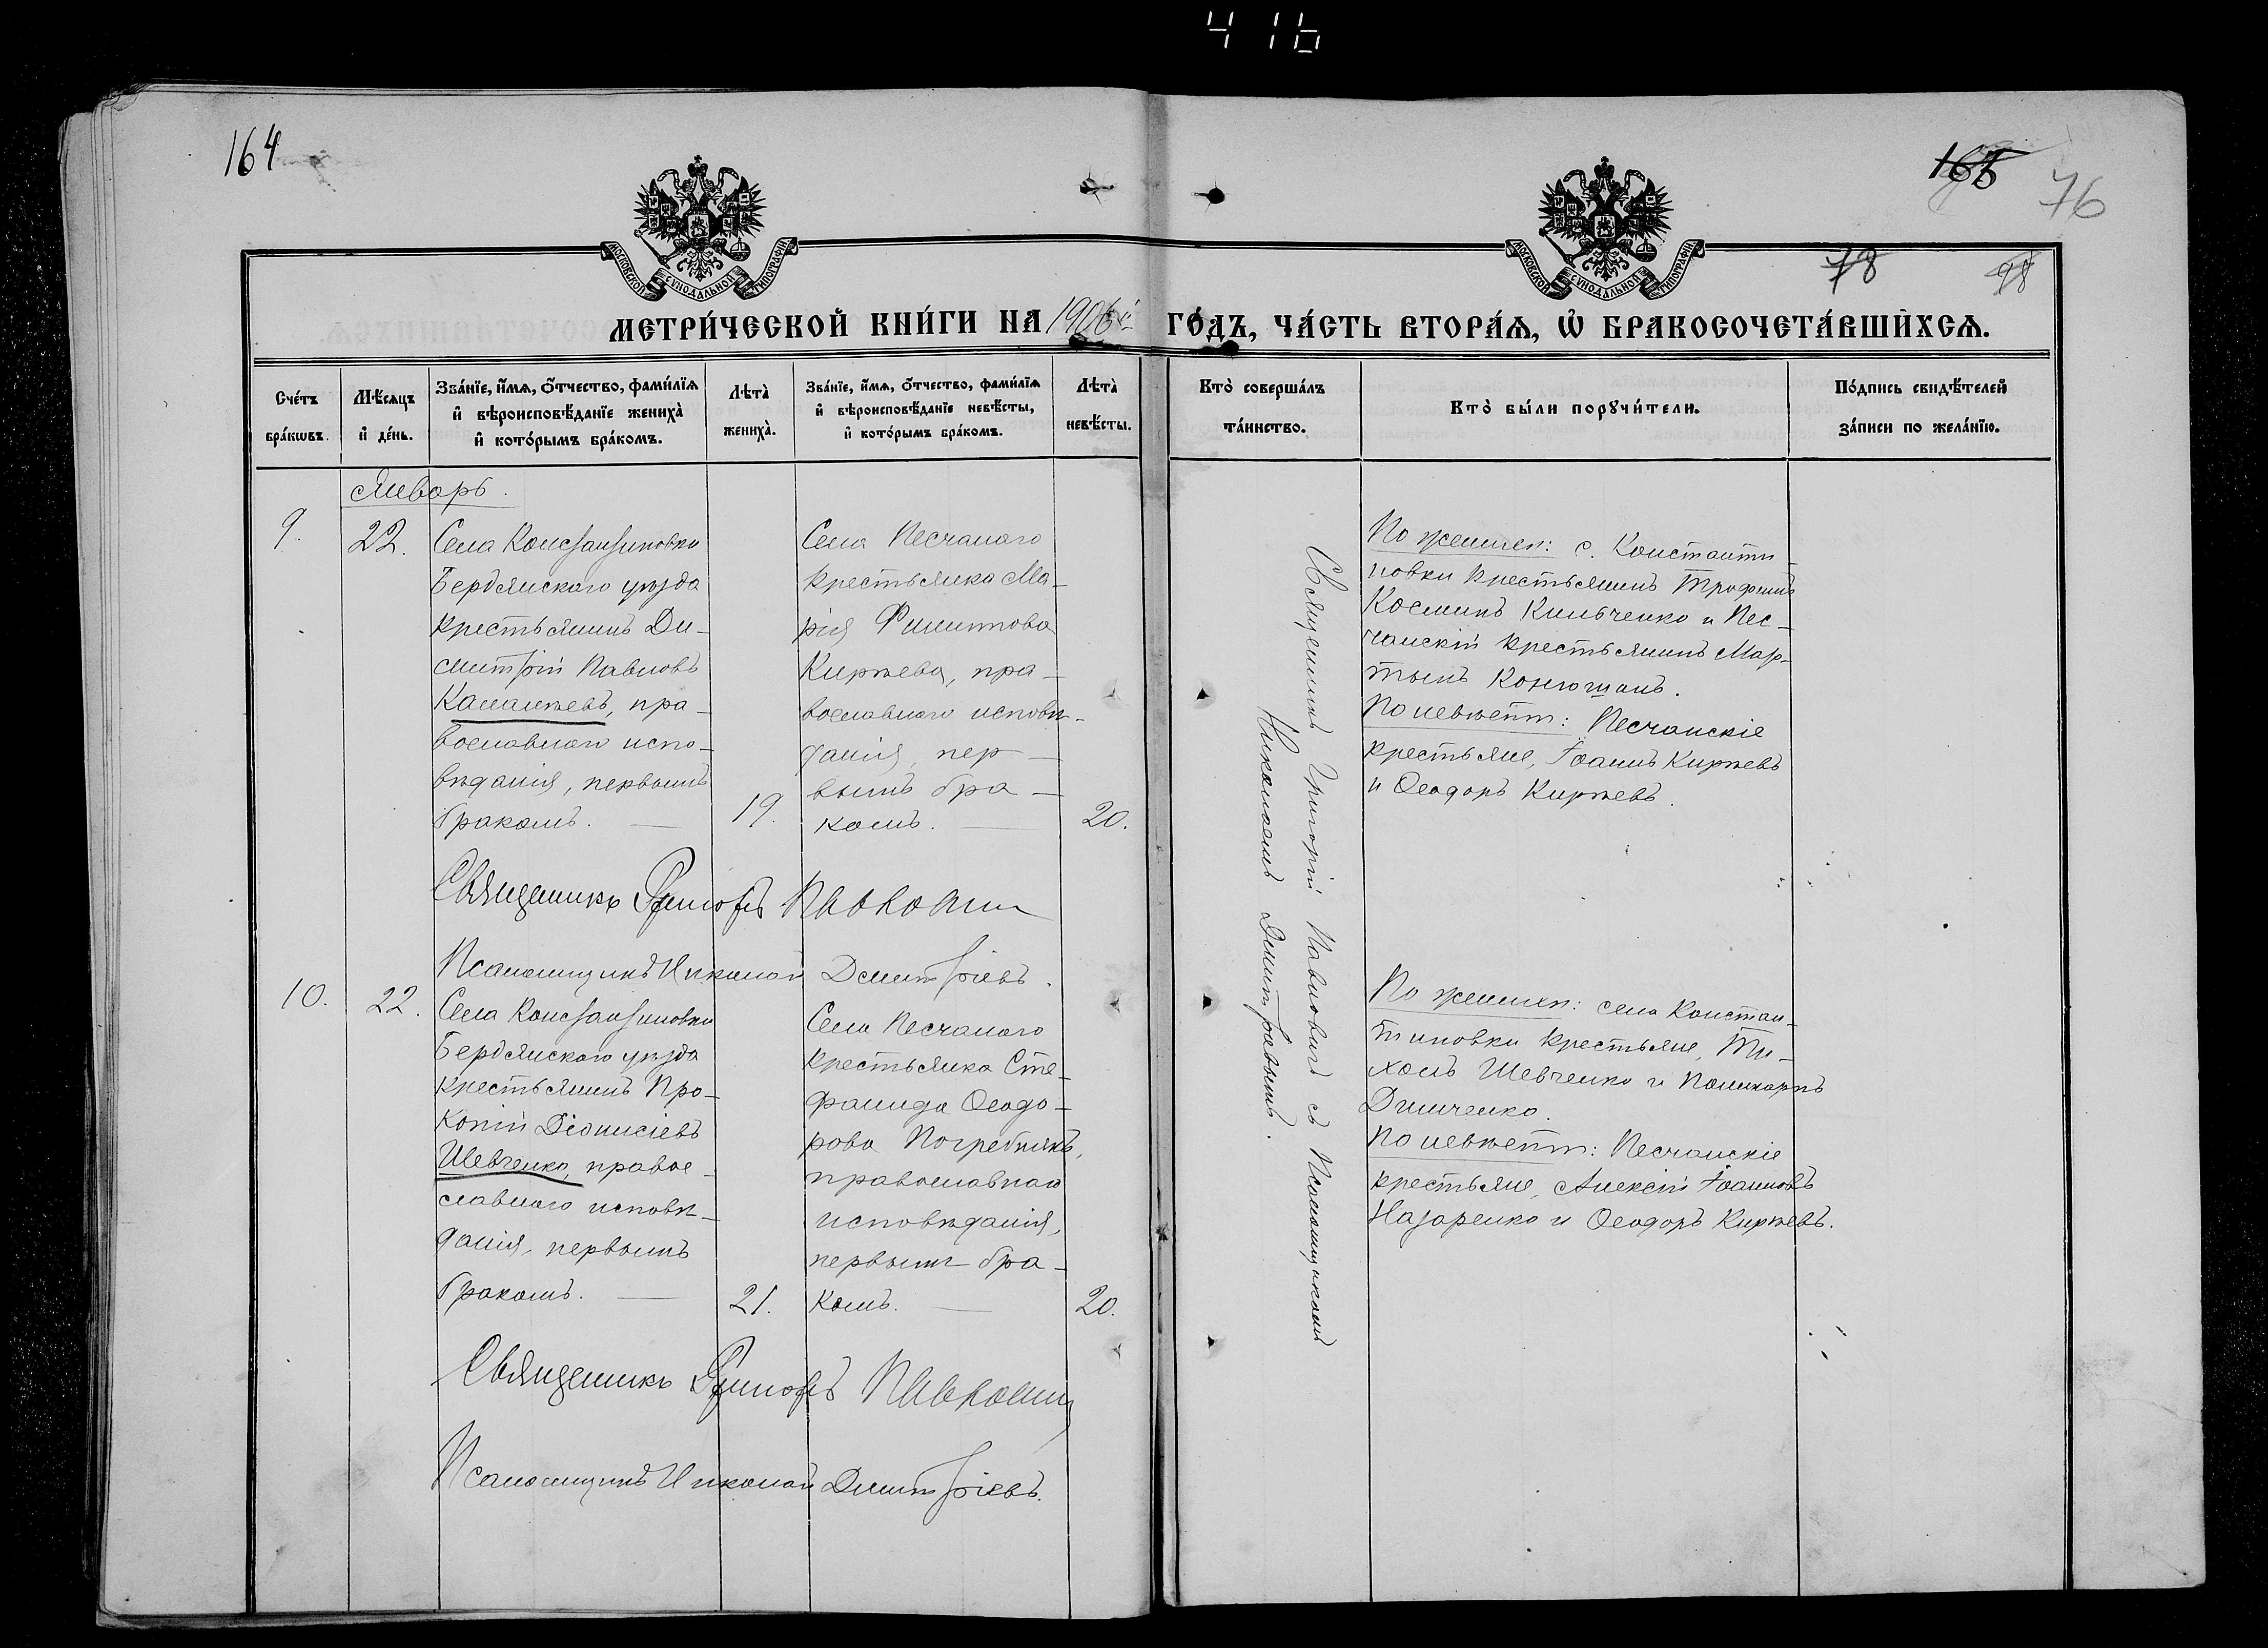 416
164
165
76
78
98
МОСКОВСКОЙ СѴНОДАЛЬНОЙ ТИПОГРАФІИ
МОСКОВСКОЙ СѴНОДАЛЬНОЙ ТИПОГРАФІИ
МЕТРИ́ЧЕСКОЙ КНИ́ГИ НА 1906й ГО́ДЪ, ЧА́СТЬ ВТОРА́Я, Ѡ БРАКОСОЧЕТА́ВШИХСЯ.
Сче́тъ бра́кѡвъ.
Мѣ́сяцъ и де́нь.
Зва́нїе, и́мя, ѻ́тчество, фами́лїя
и вѣроисповѣ́данїе жениха̀
и кото́рымъ бра́комъ.
Лѣта̀ жениха̀.
Зва́нїе, и́мя, ѻ́тчество, фами́лїя
и вѣроисповѣ́данїе невѣ́сты,
и кото́рымъ бра́комъ.
Лѣта̀ невѣ́сты.
Кто̀ соверша́лъ
та́инство.
Кто̀ бы́ли порꙋчи́тели.
По́дпись свидѣ́телей
за́писи по жела́нїю.
Январь.
9.
22.
Села Константиновки
Бердянскаго уѣзда
крестьянинъ Ди-
митрій Павловъ
Калантевъ, пра-
вославнаго испо-
вѣданія, первымъ
бракомъ.
19.
Села Песчанаго
крестьянка Ма-
рія Филиппова
Киряева, пра-
вославнаго исповѣ-
данія, пер-
вымъ бра-
комъ.
20.
Священникъ Григорій Павловичъ съ Псаломщикомъ
Николаемъ Димитріевымъ.
По женихѣ: с. Константи-
новки крестьянинъ Трофимъ
Косминъ Кильченко и Пес-
чанскій крестьянинъ Мар-
тынъ Конюшанъ.
По невѣстѣ: Песчанскіе
крестьяне, Іоаннъ Киряевъ
и Ѳеодоръ Киряевъ.
Священникъ Григорій Павлович
Псаломщикъ Николай Димитріевъ.
10.
22.
Села Константиновки
Бердянскаго уѣзда
крестьянинъ Про-
копій Діонисіевъ
Шевченко, правос-
славнаго исповѣ-
данія, первымъ
бракомъ.
21.
Села Песчанаго
крестьянка Сте-
фанида Ѳеодо-
рова Погребнякъ,
православнаго
исповѣданія,
первымъ бра-
комъ.
20.
По женихѣ: села Констан-
тиновки крестьяне, Ти-
хонъ Шевченко и Поликарпъ
Димченко.
По невѣстѣ: Песчанскіе
крестьяне, Алексій Іоанновъ
Назаренко и Ѳеодоръ Киряевъ.
Священникъ Григорій Павлович
Псаломщикъ Николай Димитріевъ.